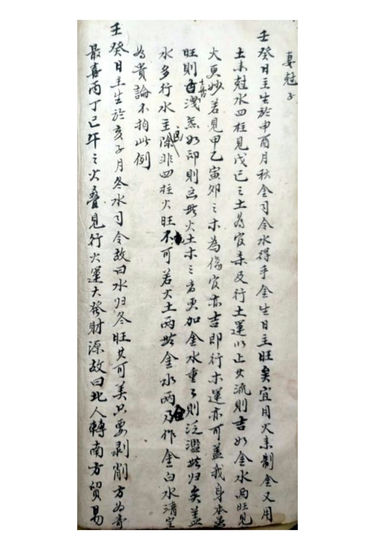 妻尅子
壬癸日主生於申酉月秋金司令水得乎金生日主旺矣宜用火來制金又用
土來尅水四柱見戊己之土為官柒及行土運以止其流則吉如金水两旺見
火更妙若見甲乙寅卯之木為傷官亦吉即行木運亦可盖我身本
旺則喜洩無如印則無火土木三者更加金水重則泛濫無归矣盖
水多行水主滛非四柱火旺不可若火土两無金水两及作金白水清
為貴論不拘此例
壬癸日主生於亥子月冬水司令故曰水归冬旺其可美只要剥削方為奇
最喜丙丁巳午之火叠見行火運大發財源故曰北人轉南方貿易